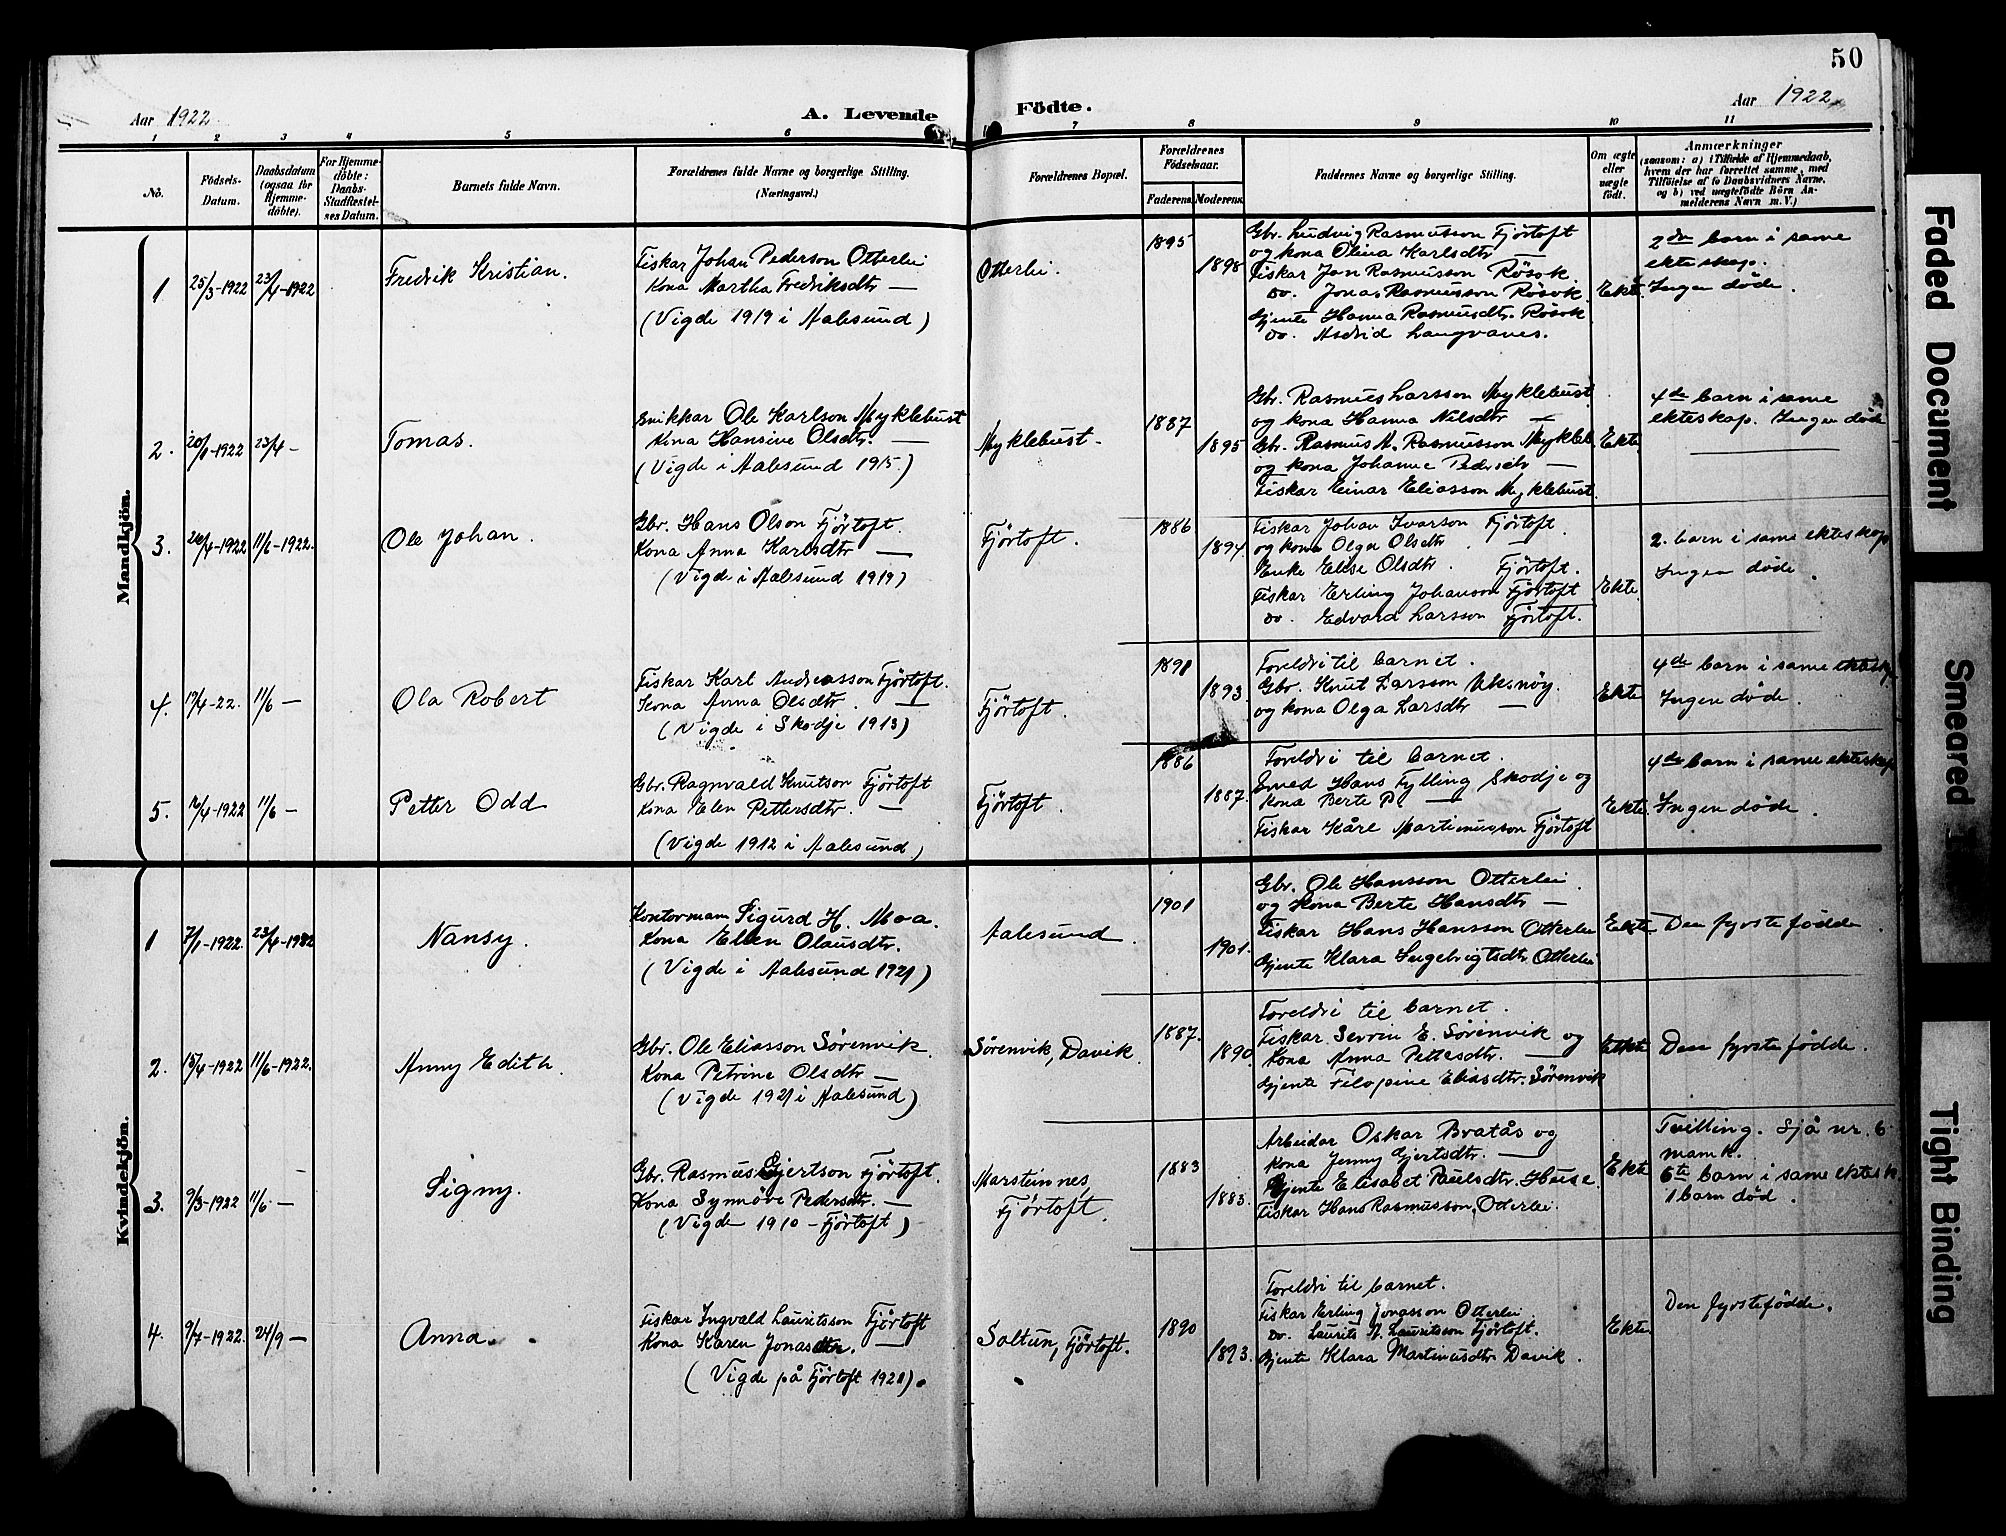 50
Aar 1922
A. Levende Födte.
Aar 1922
1 2 3 4 5 6 7 8 9 10 11
No.
Födsels-Datum.
Daabsdatum (ogsaa for Hjemmedöbte).
For Hjemmedöbte: Daabs-Stadfæstelses Datum.
Barnets fulde Navn.
Forældrenes fulde Navne og borgerlige Stilling. (Næringsvei.)
Forældrenes Bopæl.
Forældrenes Födselsaar.
Faderens
Moderens
Faddernes Navne og borgerlige Stilling.
Om ægte eller uægte födt.
Anmærkninger
(saasom: a) i Tilfælde af Hjemmedaab,
hvem der har forrettet samme, med
Tilföielse af to Daabsvidners Navne,
og b) ved uægtefödte Börn An-
melderens Navn m. V.)
Mandkjön.
1
25/3-1922
23/4-1922
Fredrik Kristian.
Fiskar Johan Pederson Otterlei
Kona Martha Fredriksdtr —
(Vigde 1919 i Aalesund)
Otterlei.
1895
1898
Gbr. Ludvig Rasmusson Fjörtoft
og kona Olina Karlsdtr —
Fiskar Jon Rasmusson Rösok
Do. Jonas Rasmusson Rösok
Gjente Hanna Rasmusdtr. Rösok
Do. Astrid Longvanes.
Ekte
2dre barn i same
ekteskap.
Ingen döde.
2.
20/1-1922
23/4 —
Tomas.
Snikkar Ole Karlson Myklebust
Kona Hansine Olsdtr. —
(Vigde i Aalesund 1915.)
Myklebust.
1887
1895
Gbr. Rasmus Larsson Myklebust
og kona Hanna Nilsdtr —
Gbr. Rasmus M. Rasmusson Mykleb
og kona Johanne Pedersdtr —
Fiskar Einar Eliasson Myklebust.
Ekte
4de barn i same
ekteskap. Ingen döde
3.
11/6-1922.
Ole Johan.
Gbr. Hans Olson Fjörtoft
Kona Anna Karlsdtr —
(Vigde i Aalesund 1919)
Fjörtoft.
1886
1894.
Fiskar Johan Ivarson Fjörtoft.
og kona Olga Olsdtr. —
Enke Elise Olsdtr. Fjörtoft.
Fiskar Erling Johanson Fjörtoft
Do. Edvard Larsson Fjörtoft.
Ekte.
2. barn i same ekteskap
Ingen döde.
4.
11/6 —
Ola Robert
Fiskar Karl Andreasson Fjörtoft.
Kona Anna Olsdtr. —
(Vigde i Skodje 1913)
Fjörtoft.
1893
Foreldri til barnet.
Gbr. Knut Larsson Uksnöy.
og kona Olga Larsdtr —
Ekte
4de barn i same ekteskap
Ingen döde.
5.
11/6 —
Petter Odd
Gbr. Ragnvald Knutson Fjörtoft
Kona Elen Pettersdtr. —
(Vigde 1912 i Aalesund.)
Fjörtoft.
1886
1887.
Foreldri til barnet.
Smed Hans Fylling Skodje og
kona Berte P. —
Fiskar Kåre Martinusson Fjörtoft
Ekte
4de barn i same ekteskap
Ingen döde.
Kvindekjön.
1
7/1-1922.
23/4-1922
Nansy.
Kontormann Sigurd H. Moa.
Kona Ellen Olausdtr.
(Vigde i Aalesund 1921)
Aalesund.
1901
1901.
Gbr. Ole Hansson Otterlei
og kona Berte Hansdtr —
Fiskar Hans Hansson Otterlei
Gjente Klara Ingebrigtsdtr Otterlei
Ekte
Den fyrstefödde.
2.
15/4-1922
11/6-1922.
Anny Edith.
Gbr. Ole Eliasson Sörenvik.
Kona Petrine Olsdtr —
(Vigde 1921 i Aalesund)
Sörenvik, Davik.
1887.
1890
Foreldri til barnet.
Fiskar Serrin E. Sörenvik og
Kona Anna Pettersdtr. —
Gjente Filopine Eliasdtr. Sörenvik
Ekte
Den fyrstefödde.
3.
9/3-1922
11/6 —
Signy.
Gbr. Rasmus Gjertson Fjörtoft.
Kona Synnöve Pedersdtr. —
(Vigde 1910 - Fjörtoft)
Marsteinnes
Fjörtoft.
1883
1883.
Arbeidar Oskar Bratås og
kona Jenny Gjertsdtr. —
Gjente Elisabet Paulsdtr. Huse.
Fiskar Hans Rasmusson, Otterlei.
Ekte
Tvilling. Sjå nr. 6
mannk.
6te barn i same ektesk.
1 barn död.
4.
9/7-1922.
24/9 —
Anna.
Fiskar Ingvald Lauritsson Fjörtoft
Kona Karen Jonasdtr. —
(Vigde på Fjörtoft 1921).
Soltun, Fjörtoft.
1890
1893.
Foreldri til barnet.
Fiskar Erling Jonasson Otterlei
Do. Laurits A. Lauritsson Fjörtoft.
Gjente Klara Martinusdtr Davik.
Ekte
Den fyrstefödde.
Faded Document
Smeared
Tight Binding